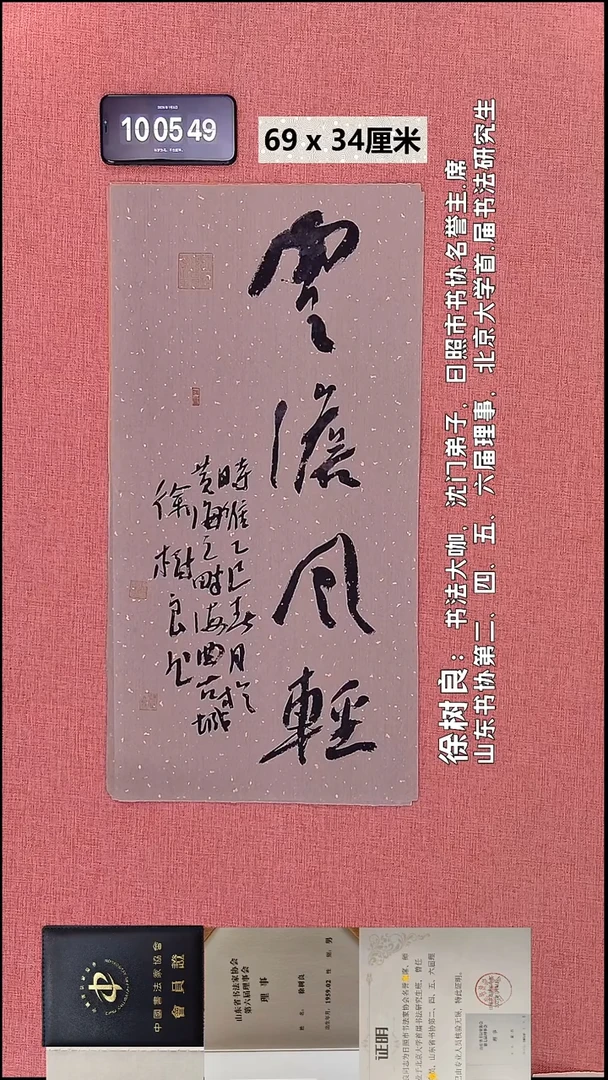 10 05 49
69 x 34厘米
雲澹风輕
時維乙巳春月於
黄海之畔海曲古城
徐樹良书
徐树良：书法大咖，沈门弟子，日照市书协名誉主.席
山东书协第二、四、五、六届理事，北京大学首.届书法研究生
中國書法家協會
會員證
山东省书法家协会
第六届理事会
理事
徐树良
男
1959.02
证明